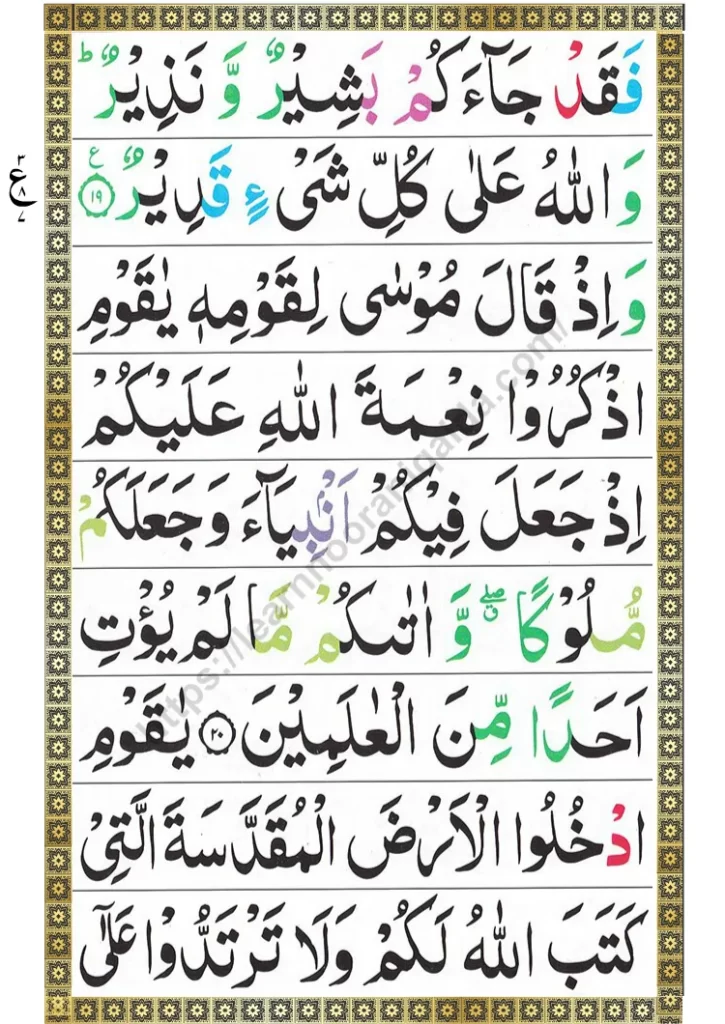 فَقَدْ جَآءَكُمْ بَشِيْرٌ وَّ نَذِيْرٌ ؕ
وَاللّٰهُ عَلٰى كُلِّ شَیْءٍ قَدِيْرٌ ۧ ﴿۱۹﴾
ع ۳ ۸ ۷
وَاِذْ قَالَ مُوْسٰى لِقَوْمِهٖ يٰقَوْمِ
اذْكُرُوْا نِعْمَةَ اللّٰهِ عَلَيْكُمْ
اِذْ جَعَلَ فِيْكُمْ اَنْۢبِيَآءَ وَجَعَلَكُمْ
مُّلُوْكًا ۖۗ وَّ اٰتٰىكُمْ مَّا لَمْ يُؤْتِ
اَحَدًا مِّنَ الْعٰلَمِيْنَ ﴿۲۰﴾ يٰقَوْمِ
ادْخُلُوا الْاَرْضَ الْمُقَدَّسَةَ الَّتِىْ
كَتَبَ اللّٰهُ لَكُمْ وَلَا تَرْتَدُّوْا عَلٰٓى
https://learnnooraniqaida.com/